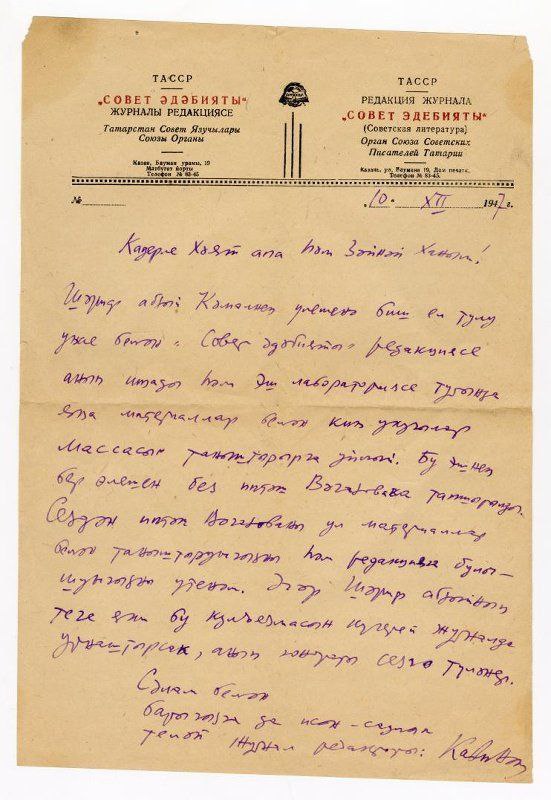 ТАССР
„СОВЕТ ӘДӘБИЯТЫ“
ЖУРНАЛЫ РЕДАКЦИЯСЕ
Татарстан Совет Язучылары
Союзы Органы
Казан, Бауман урамы, 19
Матбугат йорты
Телефон № 83-45
ТАССР
РЕДАКЦИЯ ЖУРНАЛА
„СОВЕТ ЭДЕБИЯТЫ“
(Советская литература)
Орган Союза Советских
Писателей Татарии
Казань, ул. Баумана 19, Дом печати.
Телефон № 83-45.
№
10. XII 1947 г.
Кадерле Хәят апа һәм Зәйнәп Ханым!
Шәриф абый Камалнең үлеменә биш ел тулу
уңае белән „Совет әдәбияты“ редакциясе
аның иҗады һәм эш лабораториясе турында
яңа материаллар белән киң укучылар
массасын таныштырырга уйлый. Бу эшнең
бер өлешен без иптәш Вәгаповага тапшырдык.
Сездән иптәш Вәгаповны ул материаллар
белән таныштыруыгызны һәм редакциягә булы-
шуыгызны үтенәм. Әгәр Шәриф абыйның
теге яки бу кулъязмасын күчереп журналда
урнаштырсак, аның гонорары сезгә түләнер.
Сәлам белән
барыгызга да исән-саулык
теләп журнал редакторы: